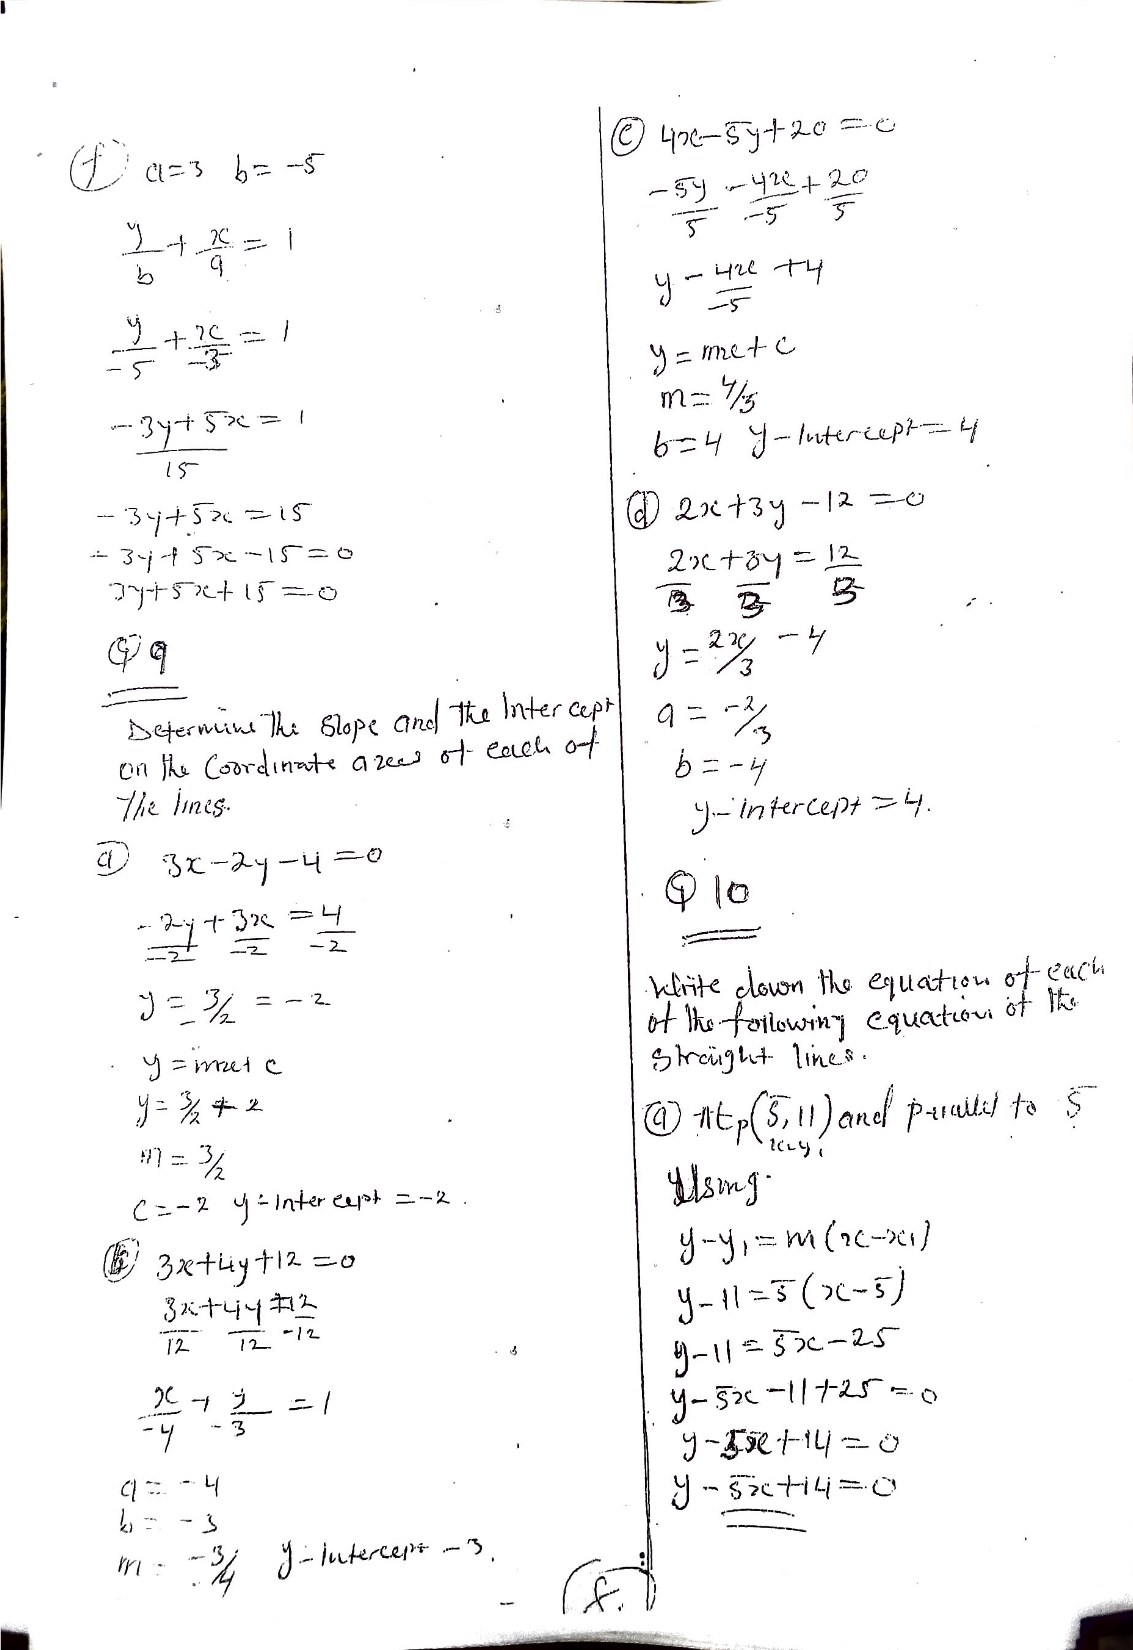 (f) a=3 b= -5
y/b + x/a = 1
y/-5 + x/-3 = 1
-3y+5x/15 = 1
-3y+5x = 15
-3y+5x-15=0
3y+5x+15=0
Q9
Determine The Slope and the Intercept
on the Coordinate axes of each of
The lines.
(a) 3x-2y-4=0
-2y/-2 + 3x/-2 = 4/-2
y = 3/2 = -2
y = mx+c
y = 3/2 + 2
m = 3/2
c=-2 y-Intercept = -2.
(b) 3x+4y+12=0
3x/12 + 4y/12 ≠ 12/-12
x/-4 + y/-3 = 1
a = -4
b = -3
m = -3/4 y-Intercept -3.
(c) 4x-5y+20=0
-5y/5 - 4x/-5 + 20/5
y - 4x/-5 + 4
y = mx+c
m = 4/5
b=4 y-Intercept = 4
(d) 2x+3y-12=0
2x/3 + 3y/3 = 12/3
y = 2x/3 - 4
a = -2/3
b = -4
y-intercept = 4.
Q10
Write down the equation of each
of the following equation of the
straight lines.
(a) At p(5,11) and parallel to 5
x1 y1
Using
y-y1 = m(x-x1)
y-11 = 5(x-5)
y-11 = 5x-25
y-5x-11+25=0
y-5x+14=0
y-5x+14=0
8.